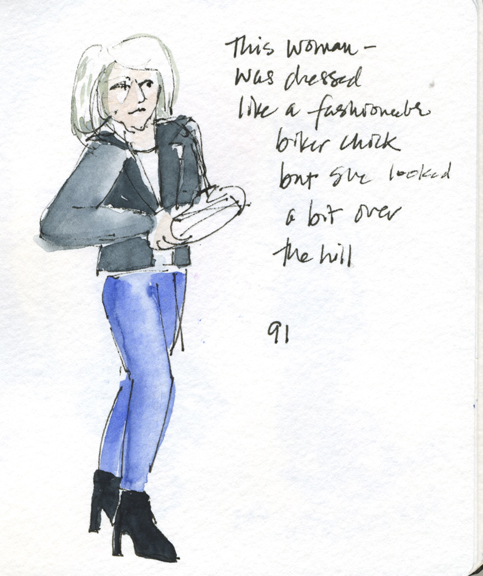 This woman -
was dressed
like a fashionable
biker chick
but she looked
a bit over
the hill
91